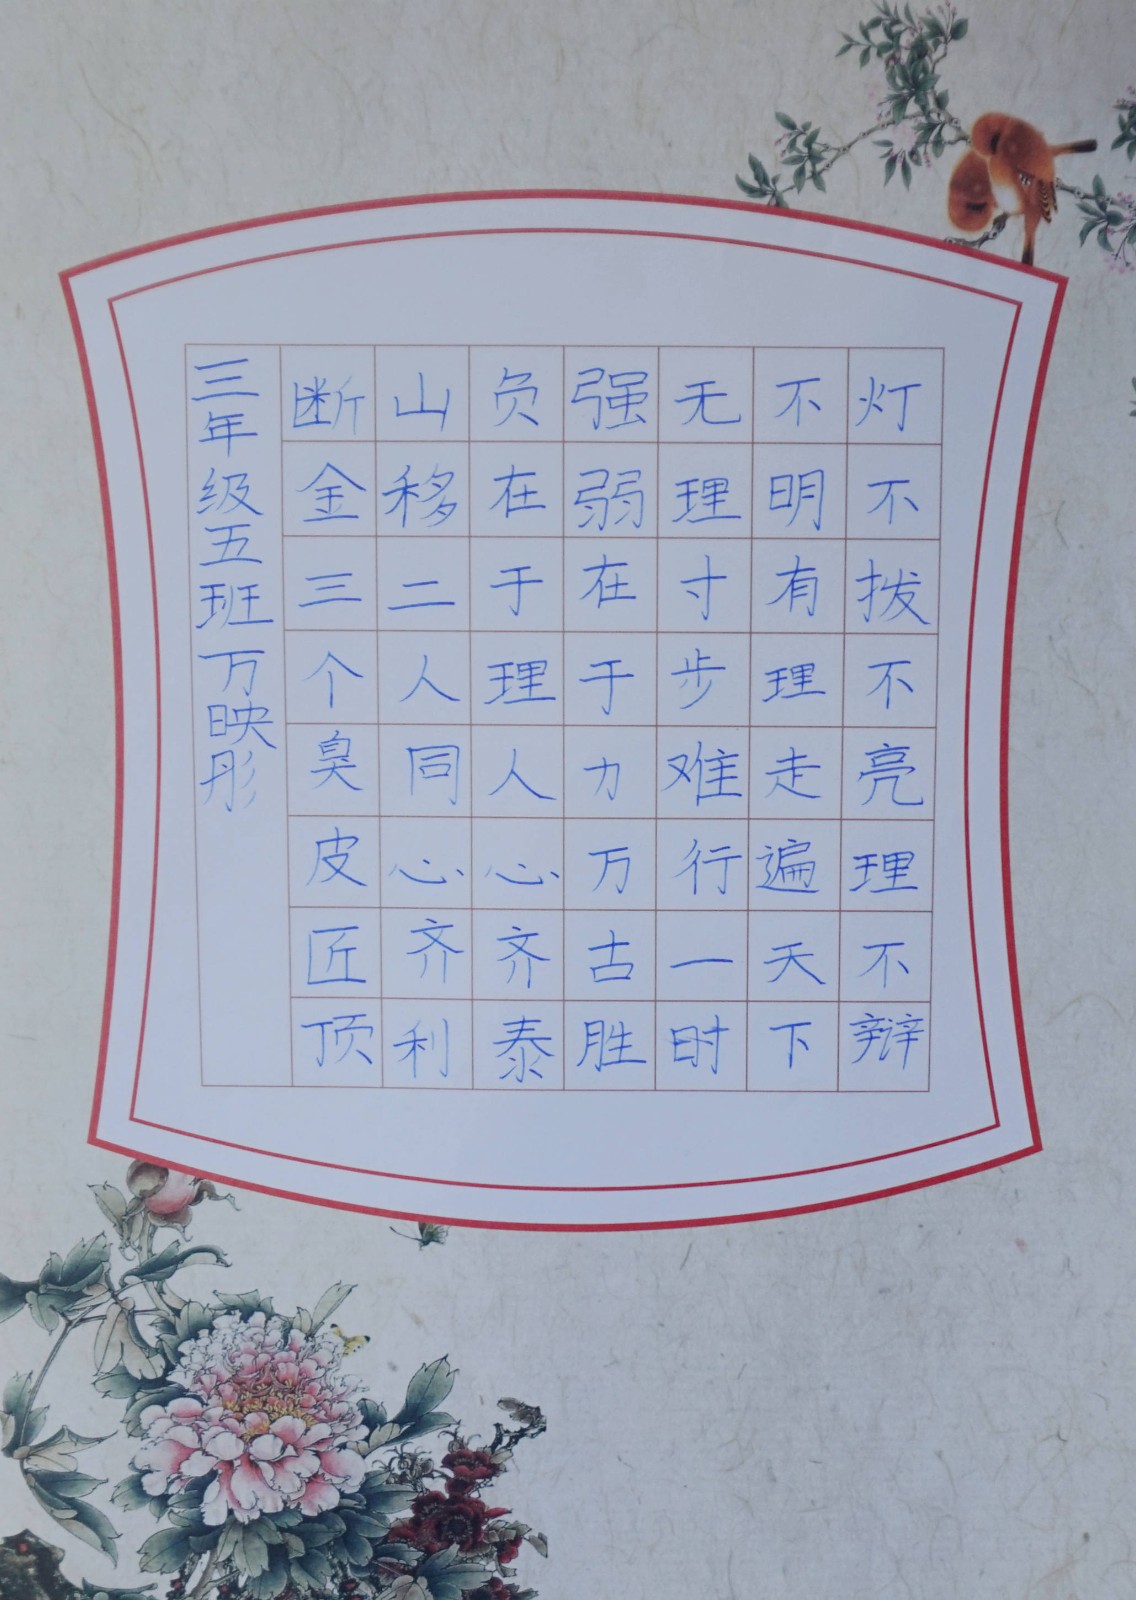 灯不拨不亮理不辩
不明有理走遍天下
无理寸步难行一时
强弱在于力万古胜
负在于理人心齐泰
山移二人同心齐利
断金三个臭皮匠顶
三年级五班万映彤